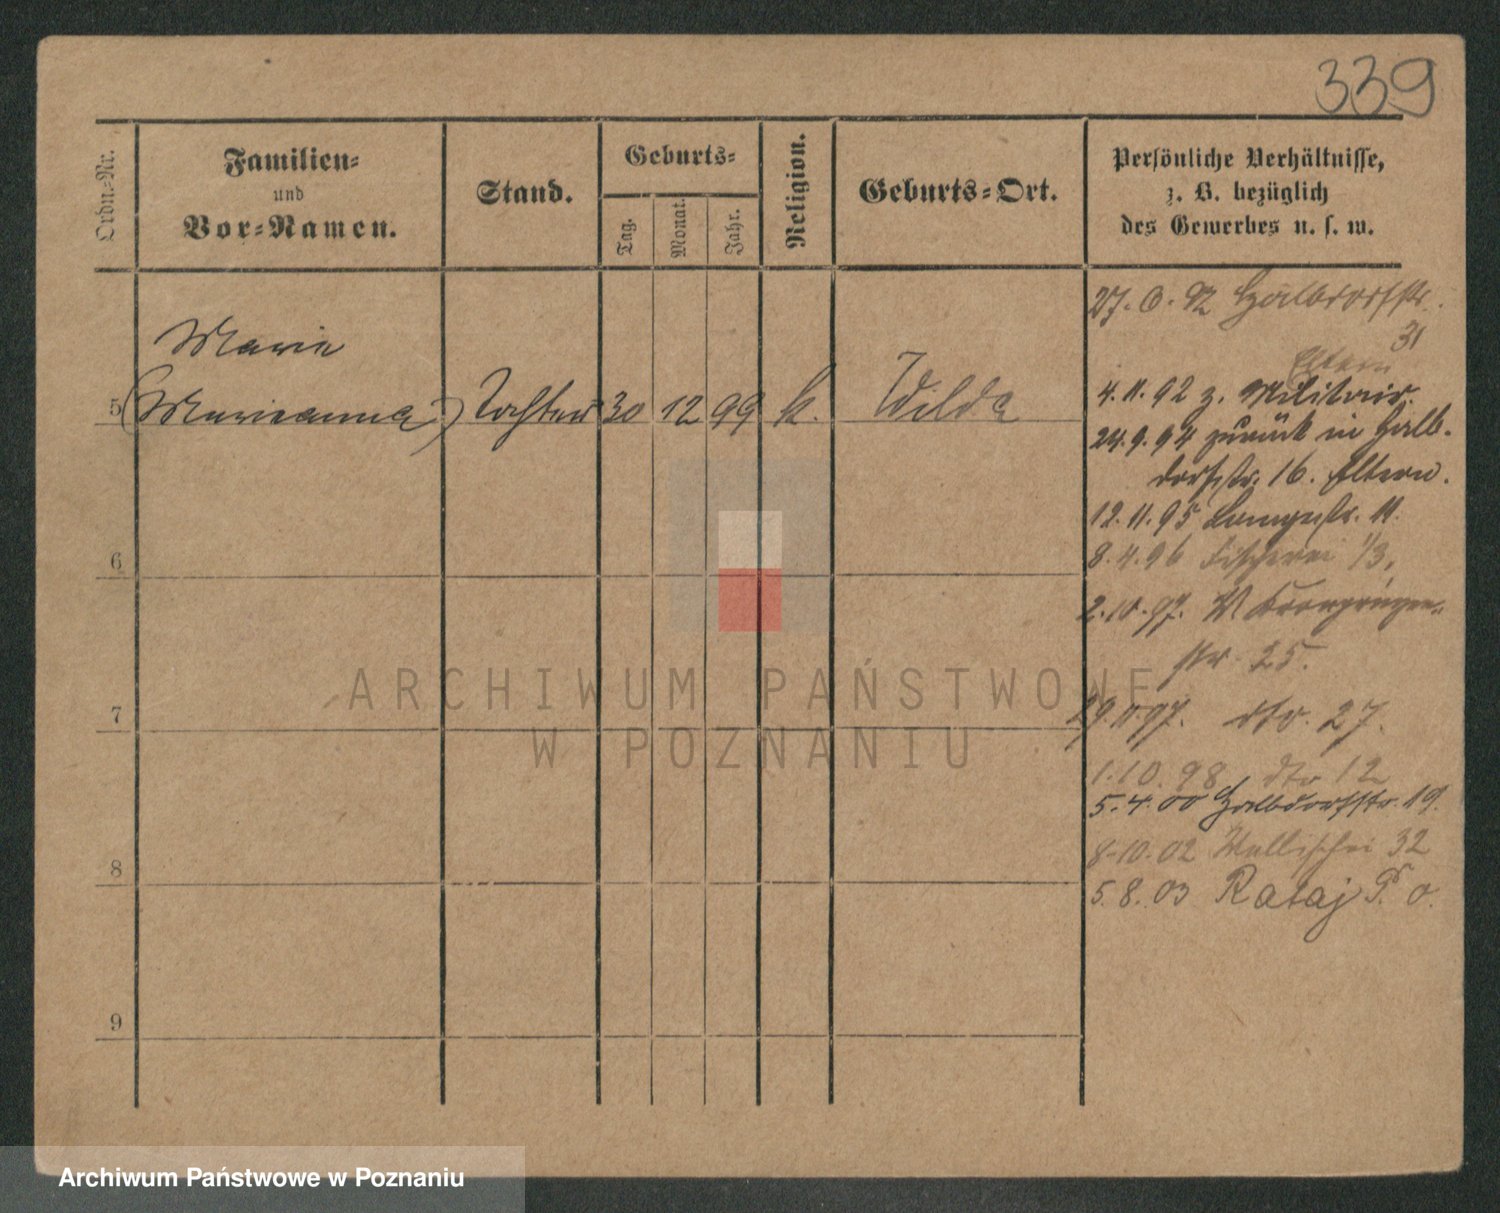 339
Ordn.-Nr.
Familien-
und
Vor-Namen.
Stand.
Geburts-
Tag.
Monat.
Jahr.
Religion.
Geburts-Ort.
Persönliche Verhältnisse,
z. B. bezüglich
des Gewerbes u. s. w.
Marie
5 (Marieanna) Tochter 30 12 99 k. Wilda
6
7
8
9
27. 6. 92 Halbdorfstr.
31
Eltern
4. 11. 92 z. Militair.
24. 9. 94 zurück in Halb-
dorfstr. 16. Eltern.
12. 11. 95 Langestr. 11.
8. 4. 96 Fischerei 1/3,
2. 10. 97. W Kronprinzen-
str. 25.
29. 11. 97. dto. 27.
1. 10. 98 dto 12
5. 4. 00 Halbdorfstr. 19.
8-10. 02 Wallischei 32
5. 8. 03 Rataj P. o.
ARCHIWUM PAŃSTWOWE
W POZNANIU
Archiwum Państwowe w Poznaniu